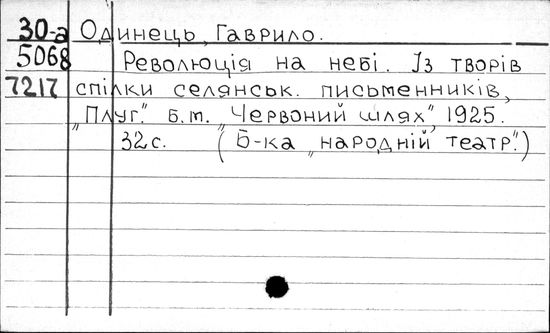 30-а Одинець, Гаврило.
5068 Революція на небі. Із творів
7217 спілки селянськ. письменників,
„Плуг“. Б.м. „Червоний шлях“, 1925.
32с. (Б-ка „народній театр“.)